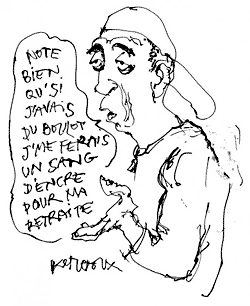 NOTE
BIEN
QU'SI
J'AVAIS
DU BOULOT
J'ME FERAIS
UN SANG
D'ENCRE
POUR MA
RETRAITE